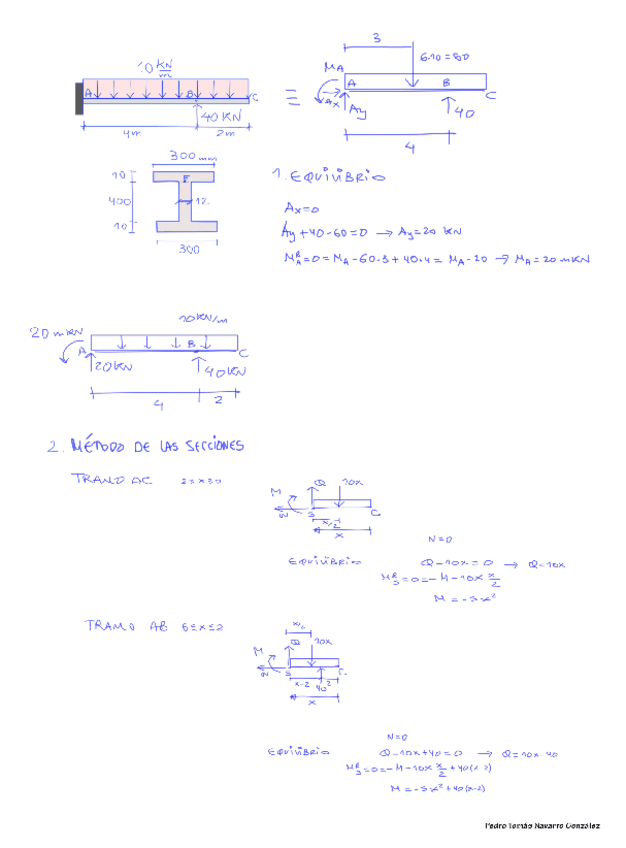 10 KN/m
A B C
40 KN
4m 2m
3
6·10=60
MA
A B C
Ax
Ay
40
4
300 mm
10
400
10
12
300
1. EQUILIBRIO
Ax=0
Ay+40-60=0 → Ay=20 KN
MA=0=MA-60·3+40·4= MA-20 → MA=20 mKN
10KN/m
20 mKN
A B C
20KN
40KN
4 2
2. MÉTODO DE LAS SECCIONES
TRAMO
M Q 10x
N S C
x/2
x
N=0
EQUILIBRIO Q-10x=0 → Q=10x
=0=-M-10x x/2
M=-5x²
TRAMO AB 6≤x≤2
M Q 10x
N S C
x-2 40 2
x
N=0
EQUILIBRIO Q-10x+40=0 → Q=10x-40
=0=-M-10x x/2 +40(x-2)
M=-5x²+40(x-2)
Pedro Tomás Navarro González